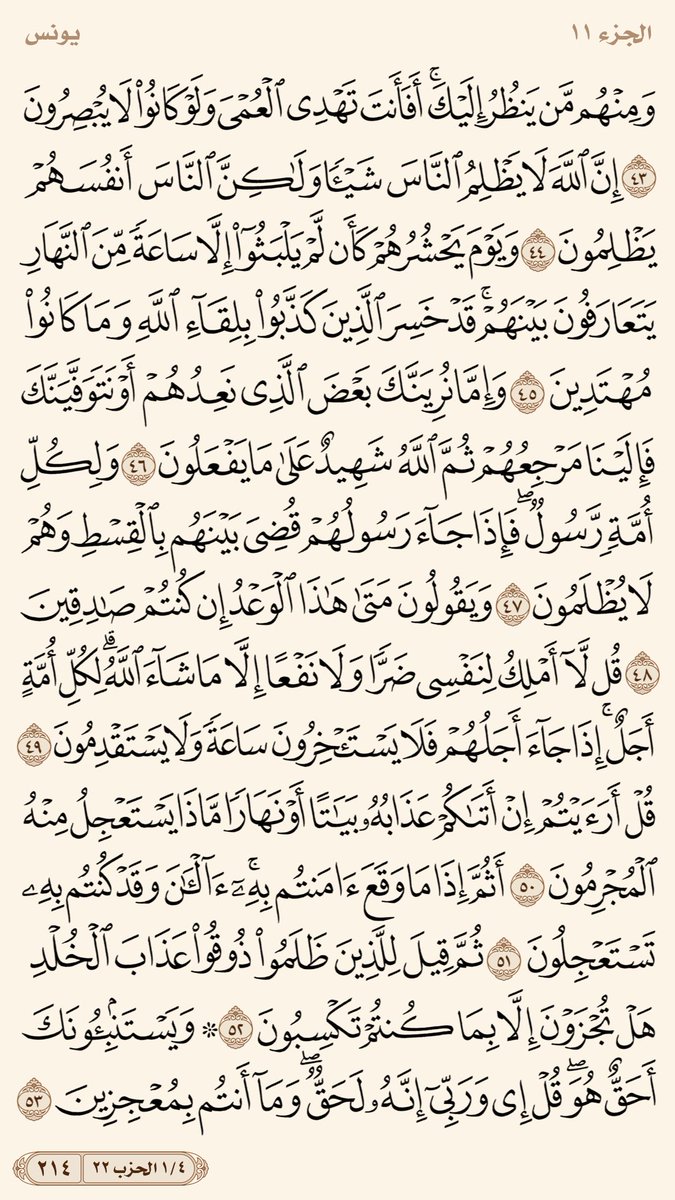 الجزء ١١ يونس
وَمِنْهُم مَّن يَنظُرُ إِلَيْكَۚ أَفَأَنتَ تَهْدِى ٱلْعُمْىَ وَلَوْ كَانُوا۟ لَا يُبْصِرُونَ
٤٣ إِنَّ ٱللَّهَ لَا يَظْلِمُ ٱلنَّاسَ شَيْـًٔا وَلَـٰكِنَّ ٱلنَّاسَ أَنفُسَهُمْ
يَظْلِمُونَ ٤٤ وَيَوْمَ يَحْشُرُهُمْ كَأَن لَّمْ يَلْبَثُوٓا۟ إِلَّا سَاعَةً مِّنَ ٱلنَّهَارِ
يَتَعَارَفُونَ بَيْنَهُمْۚ قَدْ خَسِرَ ٱلَّذِينَ كَذَّبُوا۟ بِلِقَآءِ ٱللَّهِ وَمَا كَانُوا۟
مُهْتَدِينَ ٤٥ وَإِمَّا نُرِيَنَّكَ بَعْضَ ٱلَّذِى نَعِدُهُمْ أَوْ نَتَوَفَّيَنَّكَ
فَإِلَيْنَا مَرْجِعُهُمْ ثُمَّ ٱللَّهُ شَهِيدٌ عَلَىٰ مَا يَفْعَلُونَ ٤٦ وَلِكُلِّ
أُمَّةٍ رَّسُولٌۖ فَإِذَا جَآءَ رَسُولُهُمْ قُضِىَ بَيْنَهُم بِٱلْقِسْطِ وَهُمْ
لَا يُظْلَمُونَ ٤٧ وَيَقُولُونَ مَتَىٰ هَـٰذَا ٱلْوَعْدُ إِن كُنتُمْ صَـٰدِقِينَ
٤٨ قُل لَّآ أَمْلِكُ لِنَفْسِى ضَرًّا وَلَا نَفْعًا إِلَّا مَا شَآءَ ٱللَّهُۗ لِكُلِّ أُمَّةٍ
أَجَلٌۚ إِذَا جَآءَ أَجَلُهُمْ فَلَا يَسْتَـْٔخِرُونَ سَاعَةً وَلَا يَسْتَقْدِمُونَ ٤٩
قُلْ أَرَءَيْتُمْ إِنْ أَتَىٰكُمْ عَذَابُهُۥ بَيَـٰتًا أَوْ نَهَارًا مَّاذَا يَسْتَعْجِلُ مِنْهُ
ٱلْمُجْرِمُونَ ٥٠ أَثُمَّ إِذَا مَا وَقَعَ ءَامَنتُم بِهِۦٓۚ ءَآلْـَٔـٰنَ وَقَدْ كُنتُم بِهِۦ
تَسْتَعْجِلُونَ ٥١ ثُمَّ قِيلَ لِلَّذِينَ ظَلَمُوا۟ ذُوقُوا۟ عَذَابَ ٱلْخُلْدِ
هَلْ تُجْزَوْنَ إِلَّا بِمَا كُنتُمْ تَكْسِبُونَ ٥٢ ۞ وَيَسْتَنۢبِـُٔونَكَ
أَحَقٌّ هُوَۖ قُلْ إِى وَرَبِّىٓ إِنَّهُۥ لَحَقٌّۖ وَمَآ أَنتُم بِمُعْجِزِينَ ٥٣
١/٤ الحزب ٢٢ ٢١٤